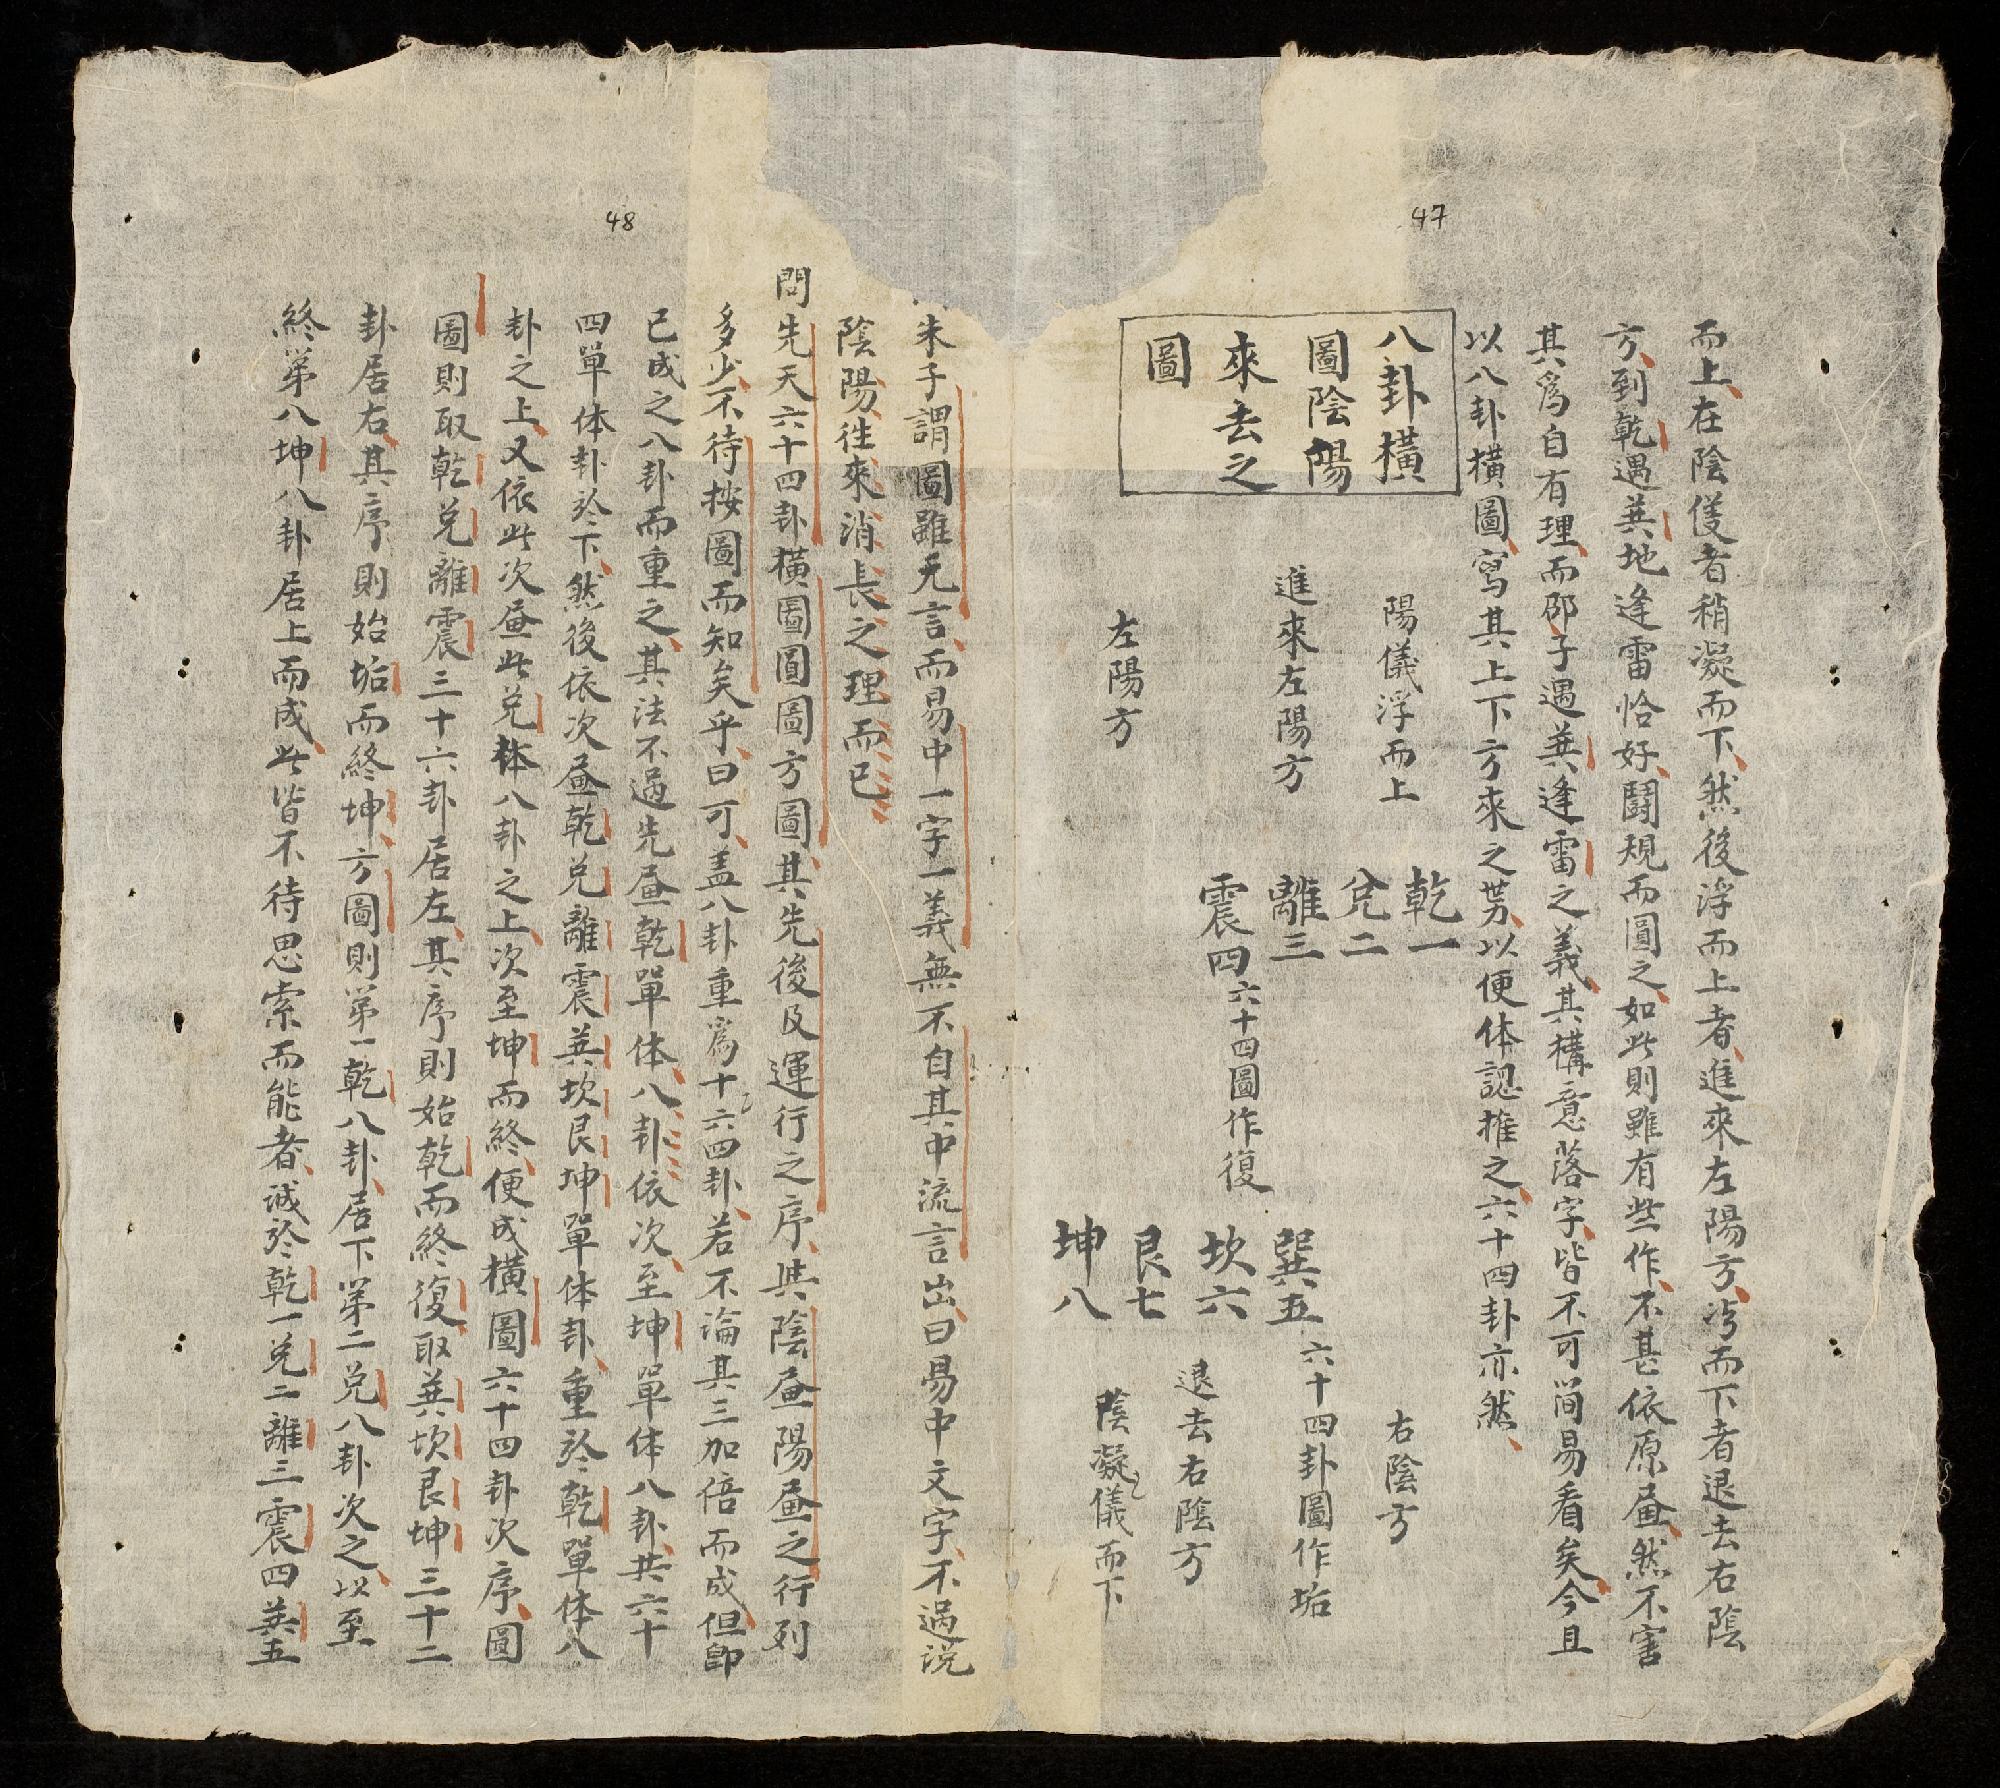 47
而上在陰儀者稍凝而下然後浮而上者進來左陽方凝而下者退去右陰
方到乾遇巽地逢雷恰好鬪規而圓之如此則雖有些作不甚依原畫然不害
其爲自有理而邵子遇巽逢雷之義其構意落字皆不可簡易看矣今且
以八卦橫圖寫其上下方來之势以便体認推之六十四卦亦然
八卦橫
圖陰陽
來去之
圖
陽儀浮而上
進來左陽方
左陽方
乾一
兌二
離三
震四六十四圖作復
巽五六十四卦圖作垢
坎六
艮七
坤八
右陰方
退去右陰方
陰凝儀而下
48
朱子謂圖雖无言而易中一字一義無不自其中流言出曰易中文字不過說
陰陽徃來消長之理而已
問先天六十四卦橫圖圓圖方圖其先後及運行之序與陰畫陽畫之行列
多少不待按圖而知矣乎曰可盖八卦重爲十六四卦若不論其三加倍而成但卽
已成之八卦而重之其法不過先畫乾單体八卦依次至坤單体八卦共六十
四單体卦於下然後依次畫乾兌離震巽坎艮坤單体卦重於乾單体八
卦之上又依此次畫此兌体八卦之上次至坤而終便成橫圖六十四卦次序圓
圖則取乾兌離震三十六卦居左其序則始乾而終復取巽坎艮坤三十二
卦居右其序則始垢而終坤方圖則第一乾八卦居下第二兌八卦次之以至
終第八坤八卦居上而成此皆不待思索而能者誠於乾一兌二離三震四巽五